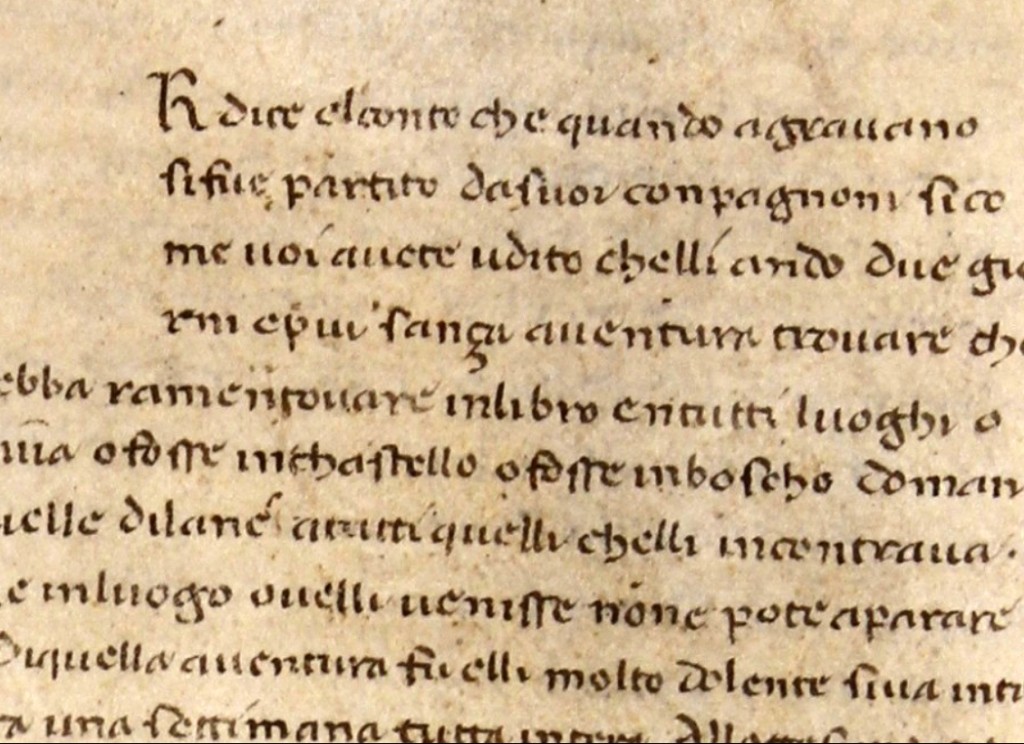 R dice elconto che quando agravano
sifue partito dasuoi conpagnoni sico
me voi avete udito chelli ando due gio
rni epiu sança aventura trovare che
ebba ramentovare inlibro entutti luoghi o
ofosse inchastello ofosse inboscho doman
elle dilanc atutti quelli chelli incontrava.
e inluogo ovelli venisse none pote aparare
Diquella aventura fu elli molto dolente siva inti
una settimana tutta intera